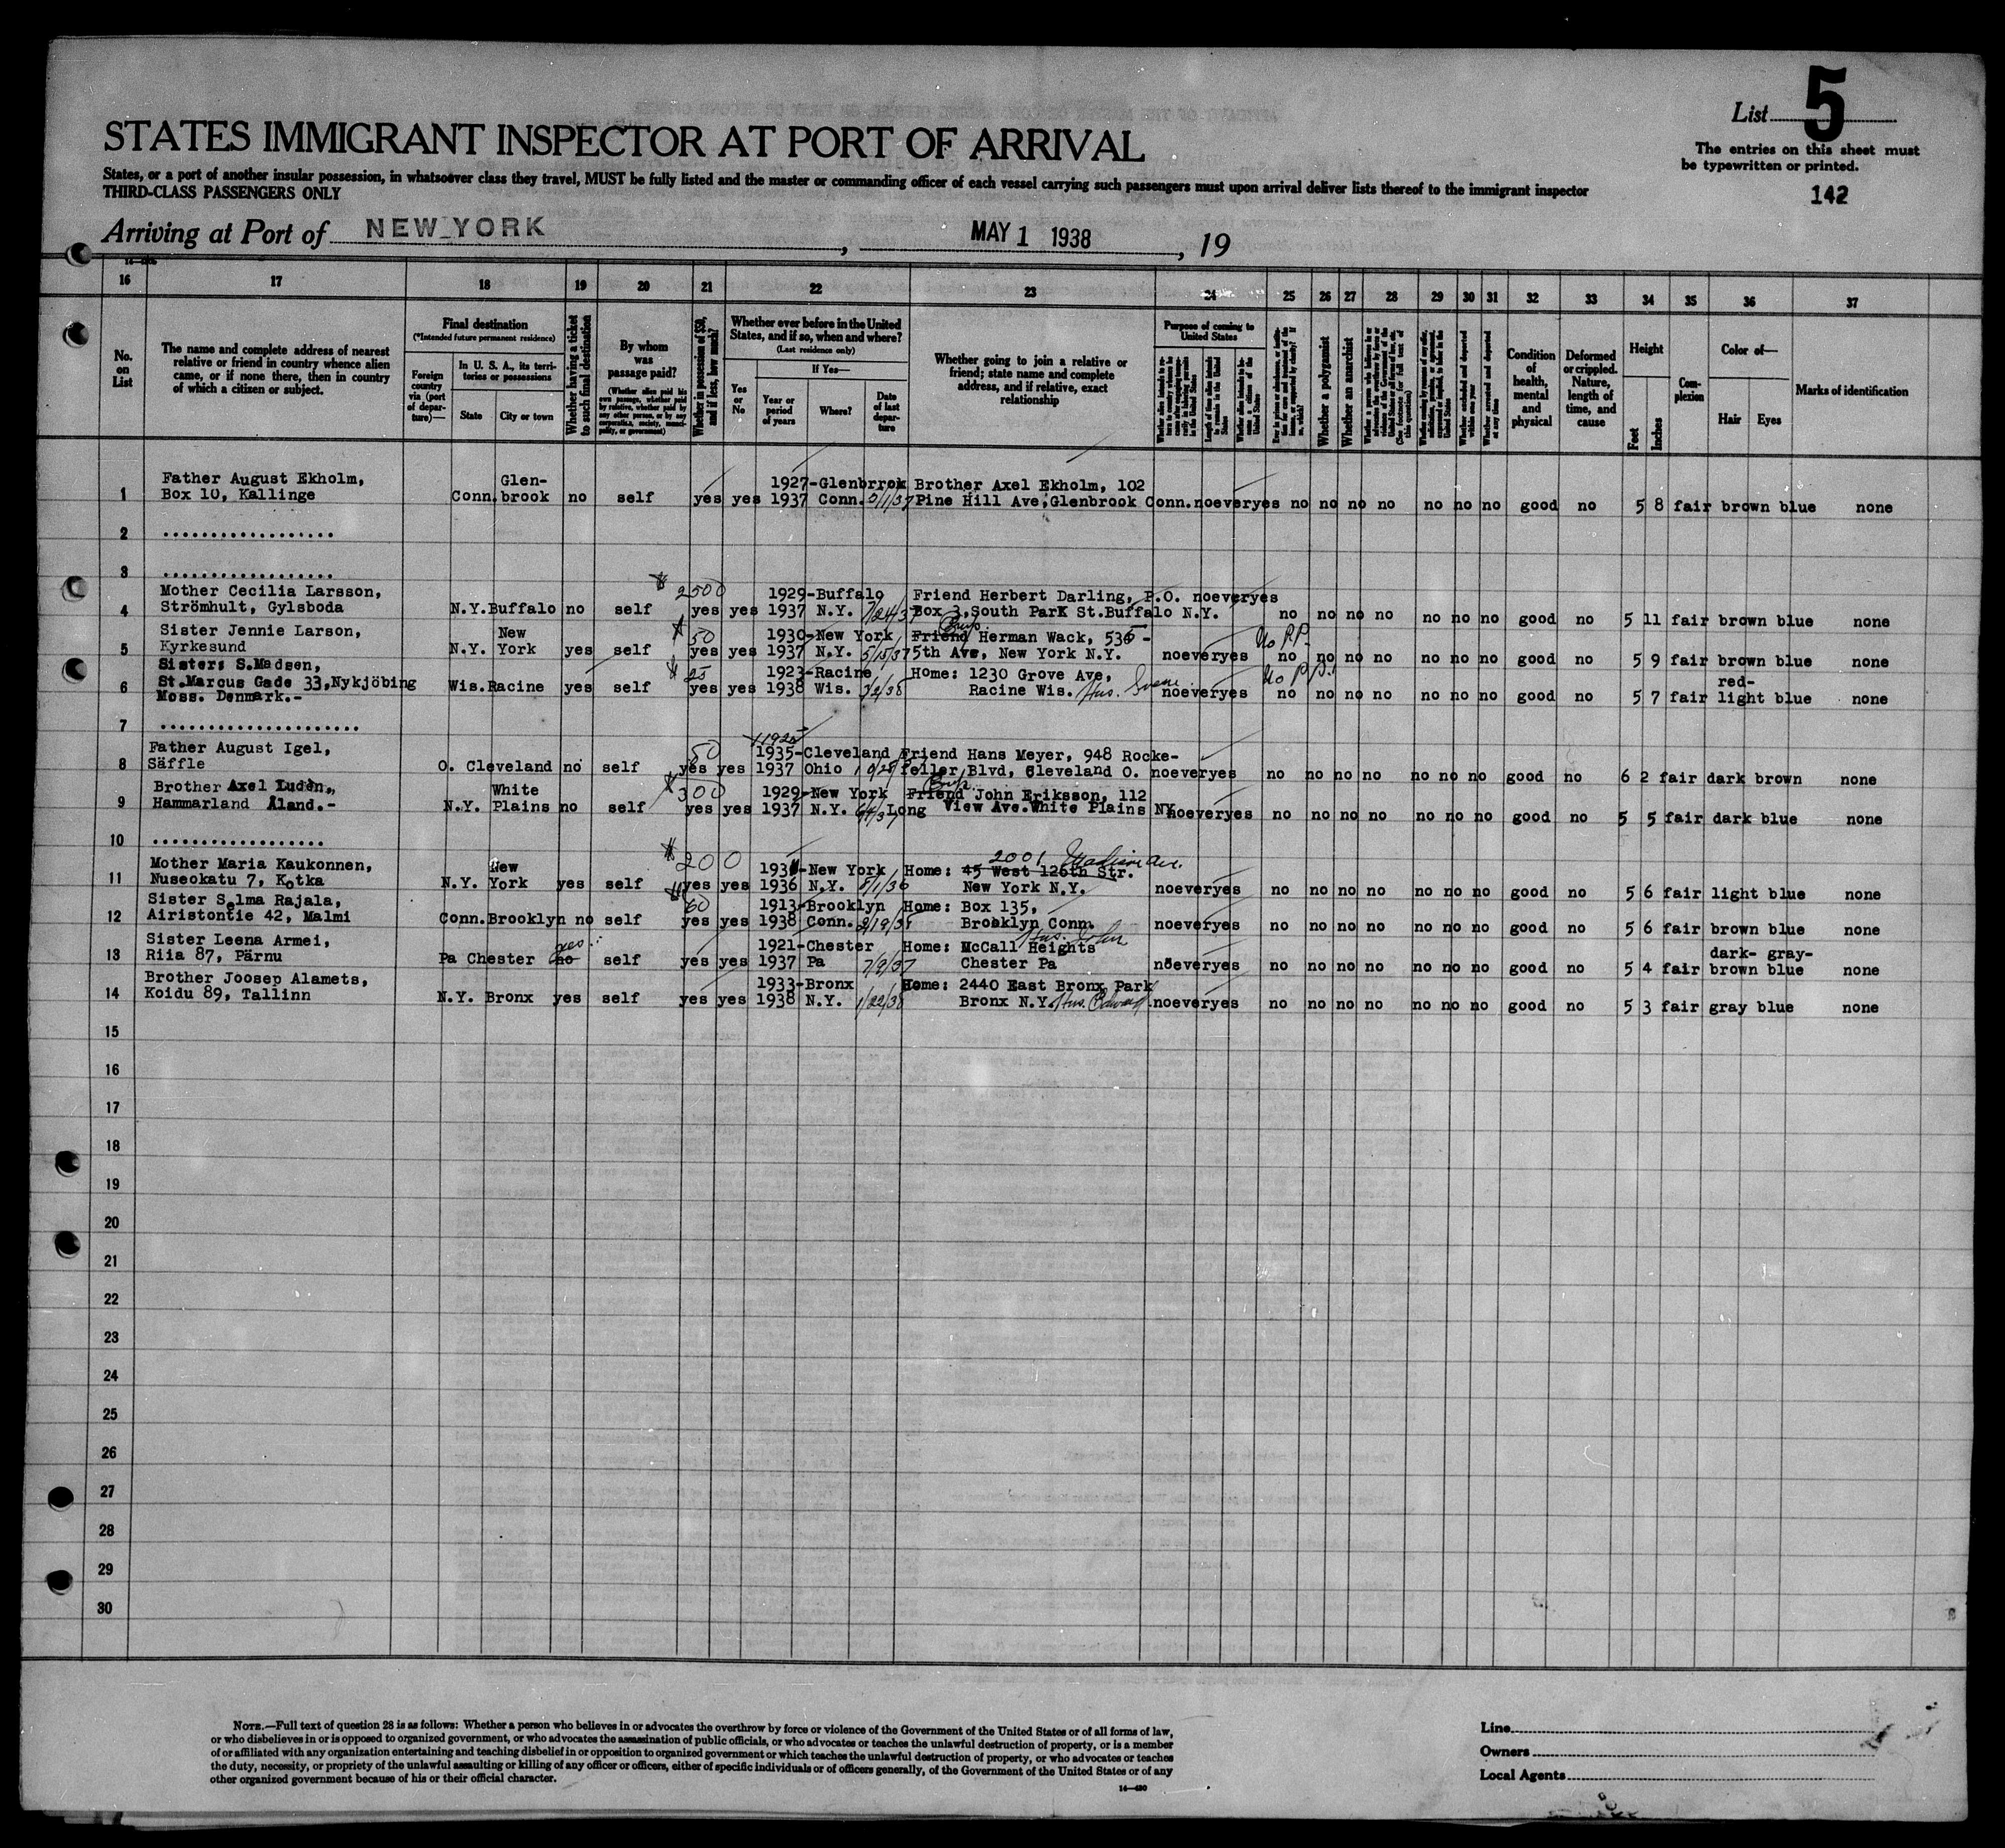 List 5
STATES IMMIGRANT INSPECTOR AT PORT OF ARRIVAL
The entries on this sheet must
be typewritten or printed.
States, or a port of another insular possession, in whatsoever class they travel, MUST be fully listed and the master or commanding officer of each vessel carrying such passengers must upon arrival deliver lists thereof to the immigrant inspector
THIRD-CLASS PASSENGERS ONLY
142
Arriving at Port of NEW YORK, MAY 1 1938, 19
16 17 18 19 20 21 22 23 24 25 26 27 28 29 30 31 32 33 34 35 36 37
No. on List
The name and complete address of nearest
relative or friend in country whence alien
came, or if none there, then in country
of which a citizen or subject.
Final destination
(*Intended future permanent residence)
Foreign country via (port of departure)—
In U. S. A., its territories or possessions
State
City or town
Whether having a ticket to such final destination
By whom was passage paid?
(Whether alien paid his own passage, whether paid by relative, whether paid by any other person, or by any corporation, society, municipality, or government)
Whether in possession of $50, and if less, how much?
Whether ever before in the United
States, and if so, when and where?
(Last residence only)
Yes or No
If Yes—
Year or period of years
Where?
Date of last departure
Whether going to join a relative or
friend; state name and complete
address, and if relative, exact
relationship
Purpose of coming to United States
Whether a polygamist
Whether an anarchist
Condition of health, mental and physical
Deformed or crippled. Nature, length of time, and cause
Height
Feet
Inches
Complexion
Color of—
Hair
Eyes
Marks of identification
Father August Ekholm, Glen- 1927-Glenbrrok Brother Axel Ekholm, 102
1 Box 10, Kallinge Conn. brook no self yes yes 1937 Conn. Pine Hill Ave, Glenbrook Conn. noeveryes no no no no no no no good no 5 8 fair brown blue none
2 ..................
3 ..................
Mother Cecilia Larsson, $ 2500 1929-Buffalo Friend Herbert Darling, P.O. noeveryes
4 Strömhult, Gylsboda N.Y. Buffalo no self yes yes 1937 N.Y. 7/24/37 Box 3, South Park St. Buffalo N.Y. no no no no no no no good no 5 11 fair brown blue none
Sister Jennie Larson, New $ 50 1930-New York Friend Herman Wack, 535 - No P.P.
5 Kyrkesund N.Y. York yes self yes yes 1937 N.Y. 5/15/37 5th Ave, New York N.Y. noeveryes no no no no no no no good no 5 9 fair brown blue none
Sister: S.Madsen, $ 25 1923-Racine Home: 1230 Grove Ave, No P.P. red-
6 St.Marcus Gade 33,Nykjöbing Wis. Racine yes self yes yes 1938 Wis. Racine Wis. Hus. noeveryes no no no no no no no good no 5 7 fair light blue none
Moss. Denmark.-
7 .....................
Father August Igel, 50 1935-Cleveland Friend Hans Meyer, 948 Rocke-
8 Säffle O. Cleveland no self yes yes 1937 Ohio feller Blvd, Cleveland O. noeveryes no no no no no no no good no 6 2 fair dark brown none
Brother Axel Ludèn., White $ 300 1929-New York Friend John Eriksson, 112
9 Hammarland Åland.- N.Y. Plains no self yes yes 1937 N.Y. Long View Ave. White Plains NY. noeveryes no no no no no no no good no 5 5 fair dark blue none
10 ..................
Mother Maria Kaukonnen, New $ 200 New York Home: 45 West 126th Str. 2001 Madison Ave.
11 Nuseokatu 7, Kotka N.Y. York yes self yes yes 1936 N.Y. 8/1/36 New York N.Y. noeveryes no no no no no no no good no 5 6 fair light blue none
Sister Selma Rajala, $ 60 1913-Brooklyn Home: Box 135,
12 Airistontie 42, Malmi Conn. Brooklyn no self yes yes 1938 Conn. 2/19/38 Brooklyn Conn. noeveryes no no no no no no no good no 5 6 fair brown blue none
Sister Leena Armei, yes 1921-Chester Home: McCall Heights Hus. John dark- gray-
13 Riia 87, Pärnu Pa Chester no self yes yes 1937 Pa 7/9/37 Chester Pa noeveryes no no no no no no no good no 5 4 fair brown blue none
Brother Joosep Alamets, 1933-Bronx Home: 2440 East Bronx Park
14 Koidu 89, Tallinn N.Y. Bronx yes self yes yes 1938 N.Y. 1/22/38 Bronx N.Y. Hus. Edward noeveryes no no no no no no no good no 5 3 fair gray blue none
15
16
17
18
19
20
21
22
23
24
25
26
27
28
29
30
NOTE.—Full text of question 28 is as follows: Whether a person who believes in or advocates the overthrow by force or violence of the Government of the United States or of all forms of law,
or who disbelieves in or is opposed to organized government, or who advocates the assassination of public officials, or who advocates or teaches the unlawful destruction of property, or is a member
of or affiliated with any organization entertaining and teaching disbelief in or opposition to organized government or which teaches the unlawful destruction of property, or who advocates or teaches
the duty, necessity, or propriety of the unlawful assaulting or killing of any officer or officers, either of specific individuals or of officers generally, of the Government of the United States or of any
other organized government because of his or their official character.
14—430
Line
Owners
Local Agents